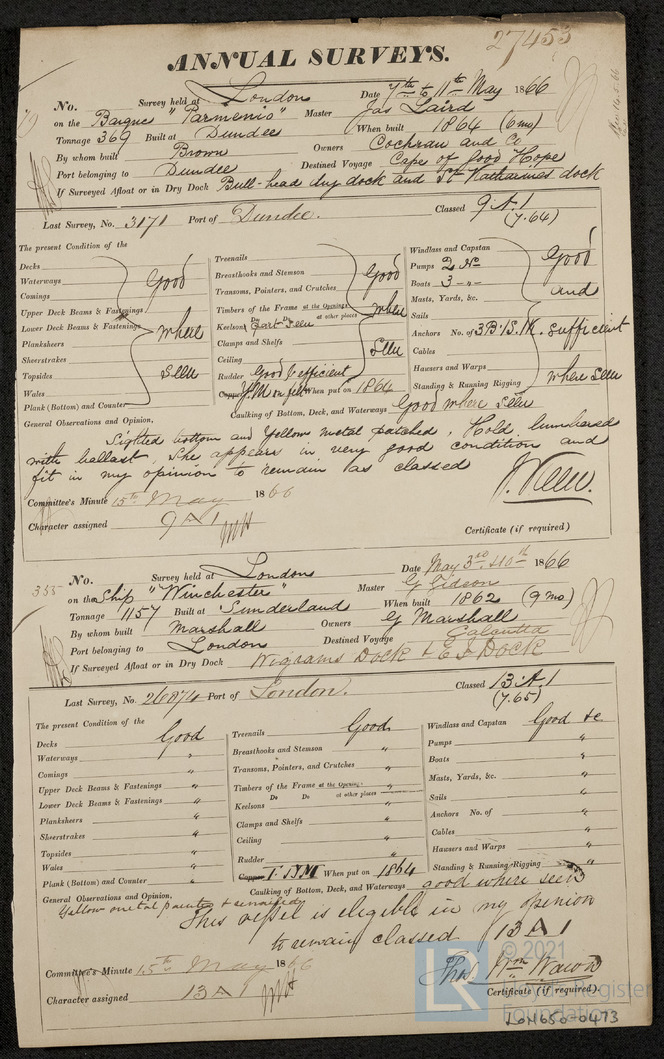 27453
ANNUAL SURVEYS.
No. Survey held at London Date 7th to 11th May 1866
on the Barque "Parmenio" Master Jas Laird
Tonnage 369 Built at Dundee When built 1864 (6 mo)
By whom built Brown Owners Cochran and Co
Port belonging to Dundee Destined Voyage Cape of Good Hope
If Surveyed Afloat or in Dry Dock Bull-head dry dock and St Katharines dock
Last Survey, No. 3171 Port of Dundee. Classed 9 A 1
(7.64)
The present Condition of the
Decks
Waterways
Comings
Upper Deck Beams & Fastenings
Lower Deck Beams & Fastenings
Planksheers
Sheerstrakes
Topsides
Wales
Plank (Bottom) and Counter
Good
where
seen
Treenails
Breasthooks and Stemson
Transoms, Pointers, and Crutches
Timbers of the Frame at the Openings
at other places
Keelsons Part seen
Clamps and Shelfs
Ceiling
Rudder Good & efficient
Copper Y.M on felt When put on 1864
Good
where
seen
Windlass and Capstan
Pumps 2 No
Boats 3 - "
Masts, Yards, &c.
Sails
Anchors No. of 3B. 1S. 1K.
Cables
Hawsers and Warps
Standing & Running Rigging
Good
and
sufficient
where seen
Caulking of Bottom, Deck, and Waterways Good where seen
General Observations and Opinion,
Sighted bottom and Yellow metal patched. Hold lumbered
with ballast. She appears in very good condition and
fit in my opinion to remain as classed
Committee's Minute 15th May 1866
Character assigned 9 A 1
Certificate (if required)
No. Survey held at London Date May 3rd & 10th 1866
on the Ship "Winchester" Master G Gideon
Tonnage 1157 Built at Sunderland When built 1862 (9 mo)
By whom built Marshall Owners G Marshall
Port belonging to London Destined Voyage Calcutta
If Surveyed Afloat or in Dry Dock Wigrams Dock & E I Dock
Last Survey, No. 26874 Port of London. Classed 13 A 1
(7.65)
The present Condition of the
Decks Good
Waterways "
Comings "
Upper Deck Beams & Fastenings "
Lower Deck Beams & Fastenings "
Planksheers "
Sheerstrakes "
Topsides "
Wales "
Plank (Bottom) and Counter "
Treenails Good
Breasthooks and Stemson "
Transoms, Pointers, and Crutches "
Timbers of the Frame at the Openings "
Do Do at other places
Keelsons "
Clamps and Shelfs "
Ceiling "
Rudder "
Copper When put on 1864
Windlass and Capstan Good &c
Pumps "
Boats "
Masts, Yards, &c. "
Sails "
Anchors No. of "
Cables "
Hawsers and Warps "
Standing & Running Rigging "
Caulking of Bottom, Deck, and Waterways good where seen
General Observations and Opinion,
Yellow metal
This vessel is eligible in my opinion
to remain classed 13 A 1
Committee's Minute 15th May 1866
Character assigned 13 A 1
Certificate (if required).
LR
© 2021
Lloyd's Register
Foundation
LON650-0473